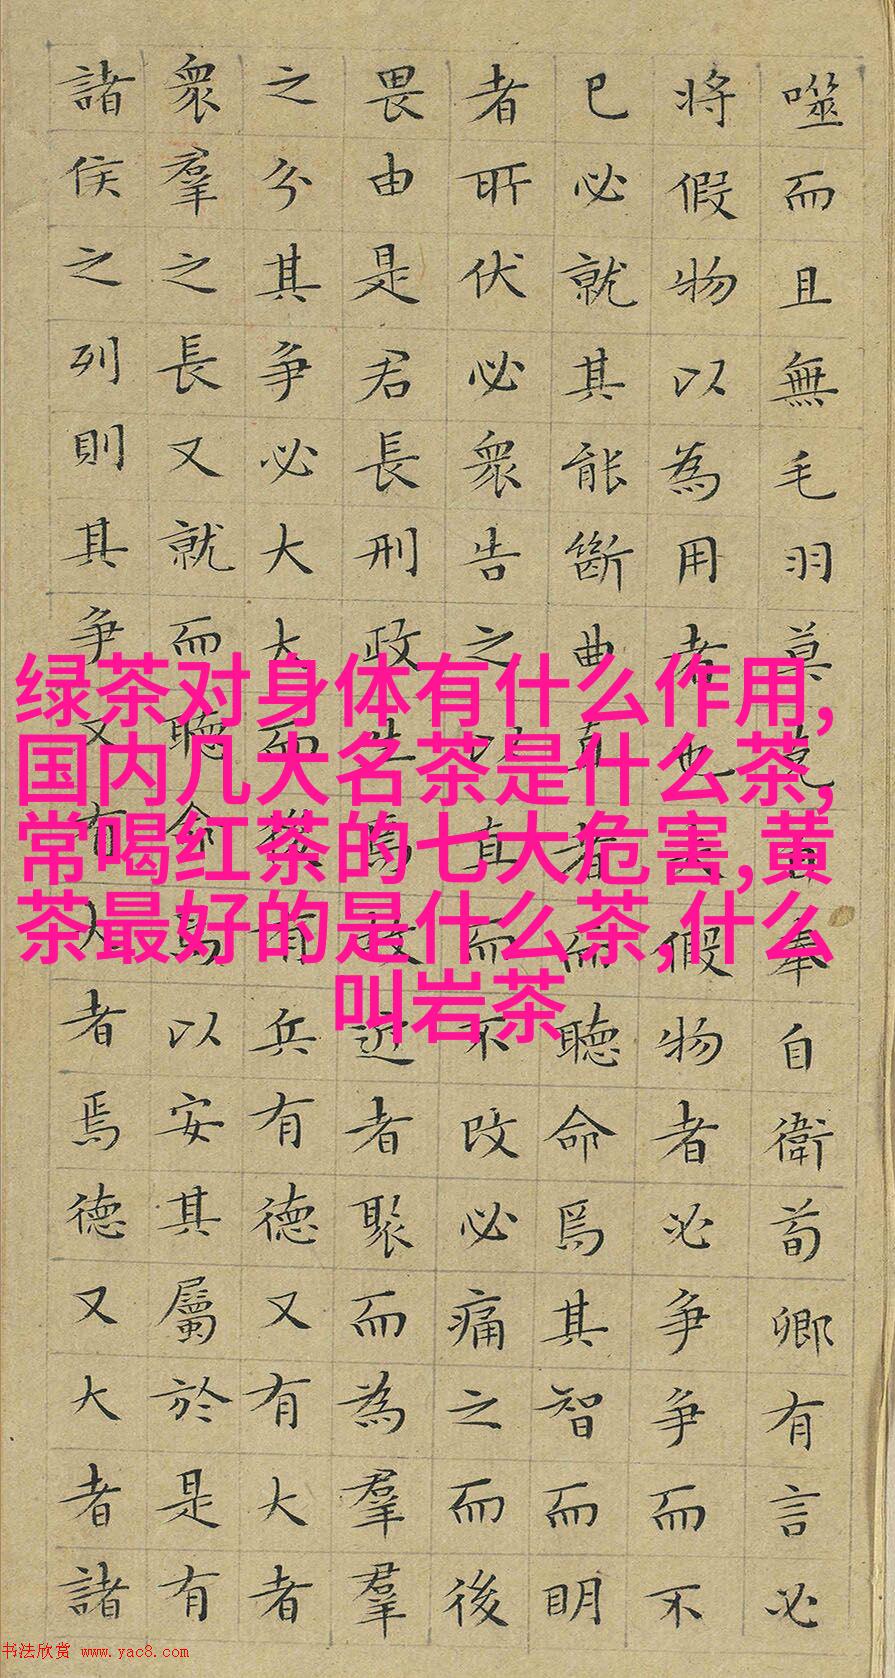 噬而且無毛羽莫克自奉自衛荀卿有言必
將假物以為用者也夫假物者必爭爭而不
已必就其能斷曲直者而聽命焉其智而明
者所伏必衆告之以直而不改必痛之而後
畏由是君長刑政生焉故近者聚而為羣羣
之分其爭必大大而後有兵有德又有大者
衆羣之長又就而聽命焉以安其屬於是有
諸侯之列則其爭又有大者焉德又大者諸
绿茶对身体有什么作用,
国内几大名茶是什么茶,
常喝红茶的七大危害,黄
茶最好的是什么茶,什么
叫岩茶
书法欣赏 www.yac8.com